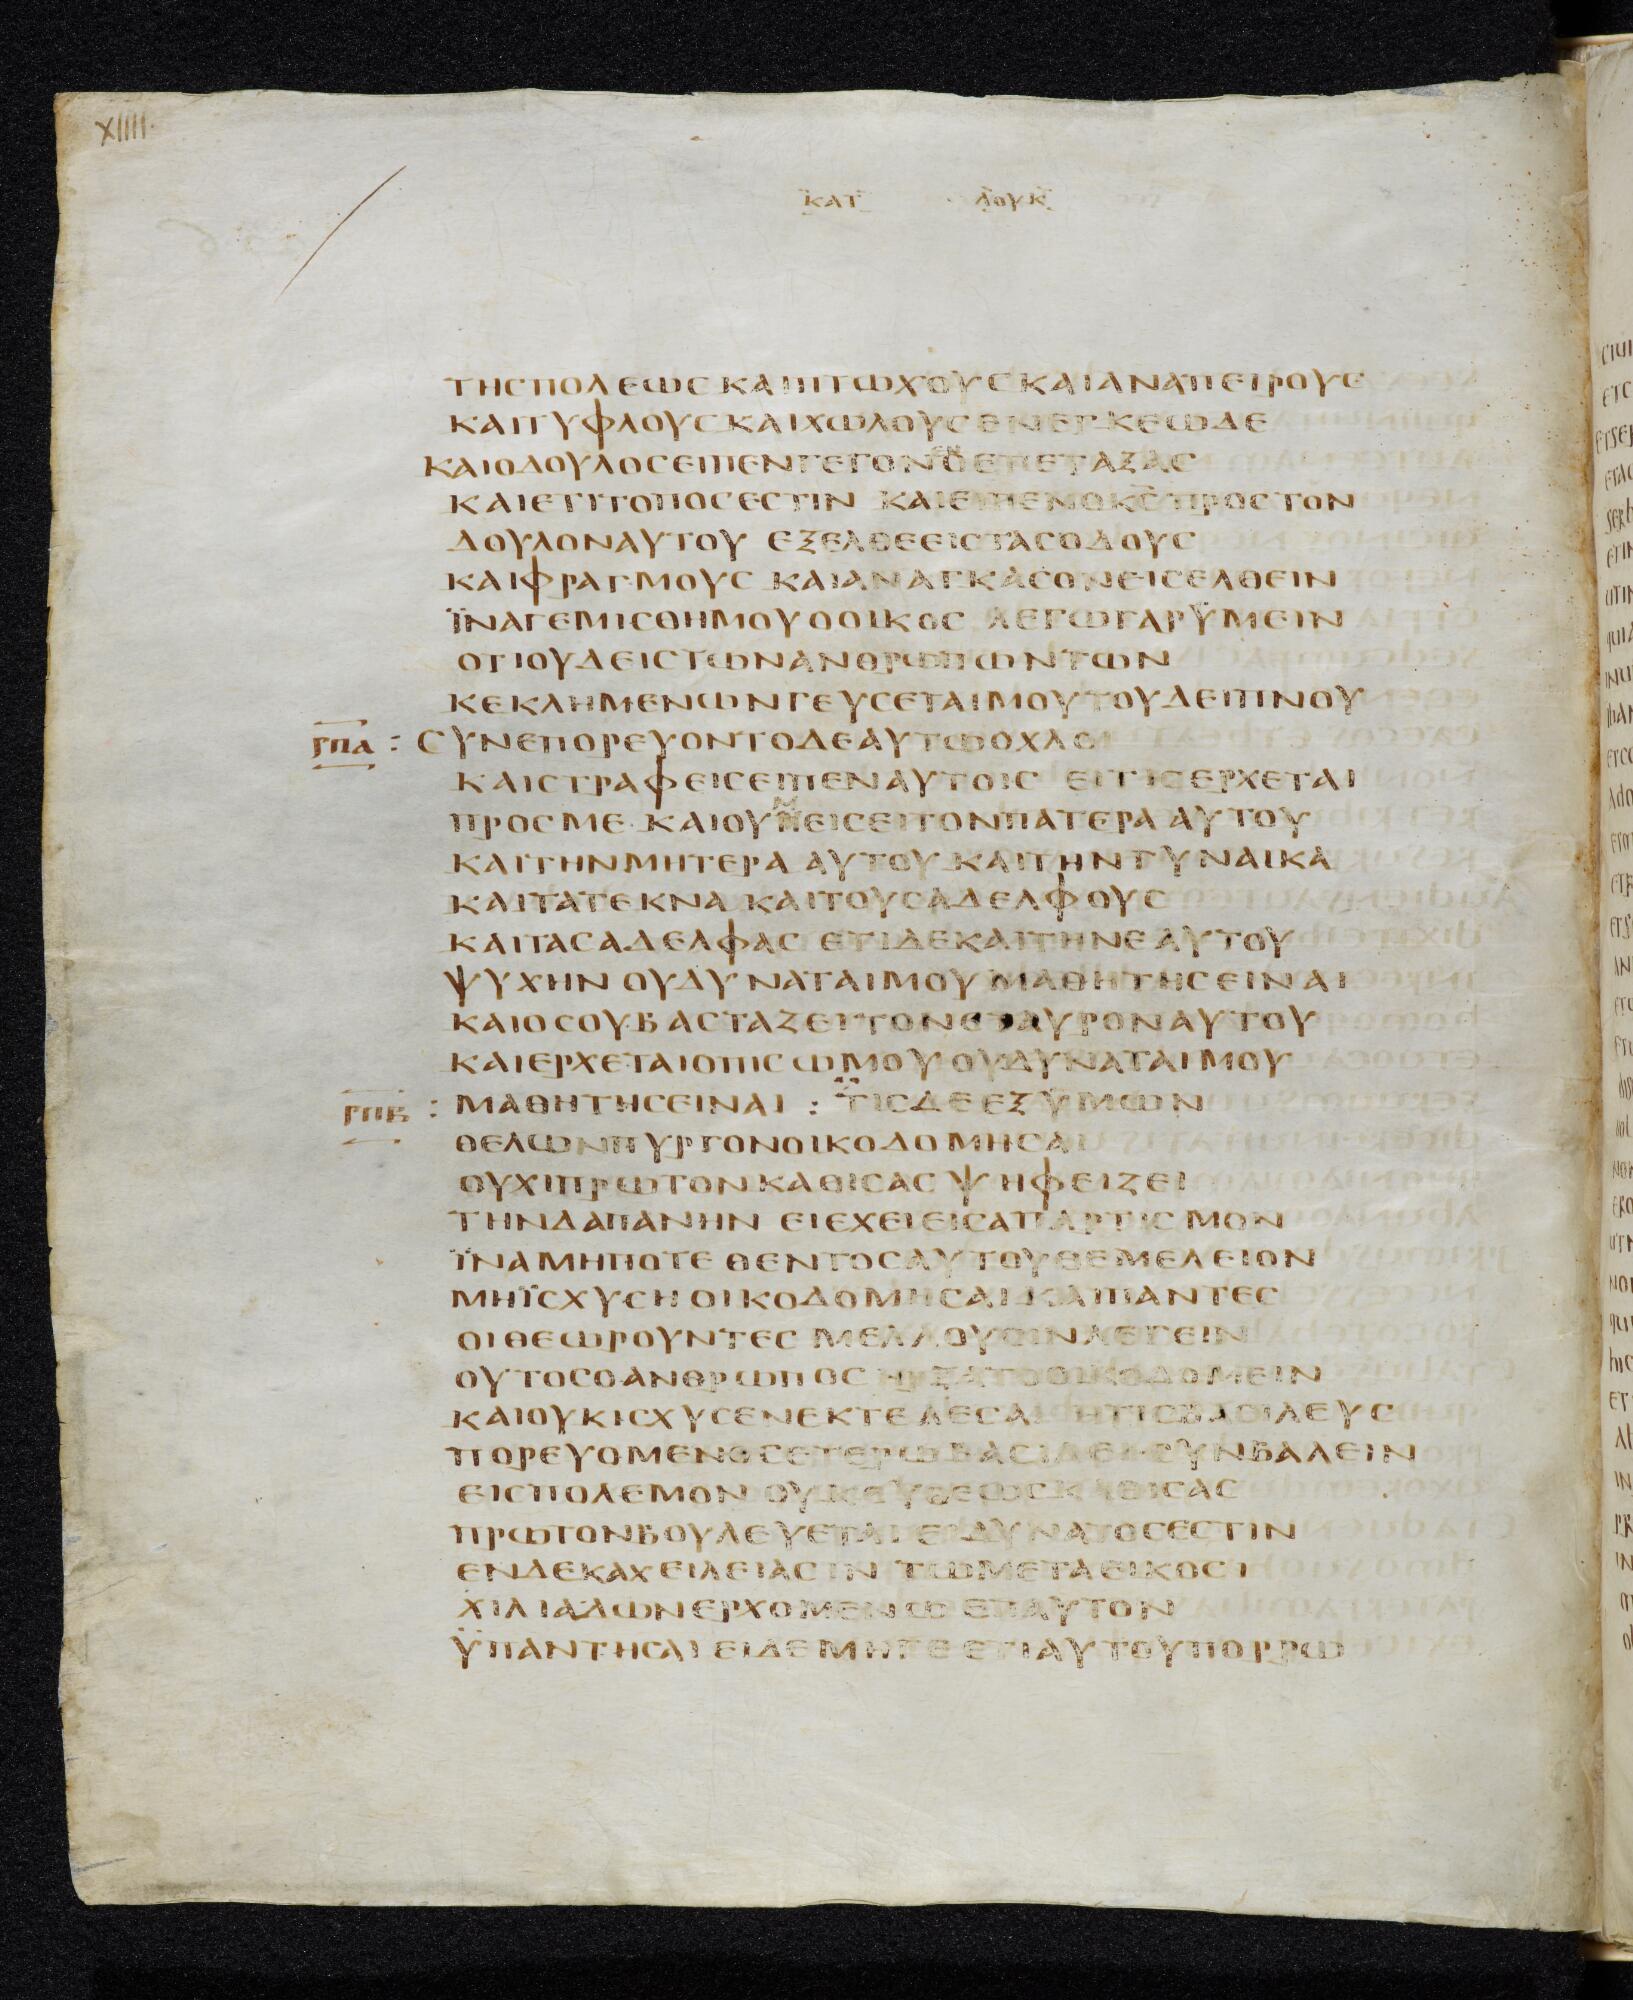 XIIII·
ΚΑΤ ΛΟΥΚ
ΤΗСΠΟΛΕΩСΚΑΙΠΤΩΧΟΥСΚΑΙΑΝΑΠΕΙΡΟΥС
ΚΑΙΤΥΦΛΟΥСΚΑΙΧΩΛΟΥСΕΝΕΓΚΕΩΔΕ
ΚΑΙΟΔΟΥΛΟСΕΙΠΕΝΓΕΓΟΝΟΕΠΕΤΑΞΑС
ΚΑΙΕΤΙΤΟΠΟСΕСΤΙΝ ΚΑΙΕΙΠΕΝΟΚ̅С̅ΠΡΟСΤΟΝ
ΔΟΥΛΟΝΑΥΤΟΥ ΕΞΕΛΘΕΕΙСΤΑСΟΔΟΥС
ΚΑΙΦΡΑΓΜΟΥС ΚΑΙΑΝΑΓΚΑСΟΝΕΙСΕΛΘΕΙΝ
ΪΝΑΓΕΜΙСΘΗΜΟΥΟΟΙΚΟС ΛΕΓΩΓΑΡΫΜΕΙΝ
ΟΤΙΟΥΔΕΙСΤΩΝΑΝΘΡΩΠΩΝΤΩΝ
ΚΕΚΛΗΜΕΝΩΝΓΕΥСΕΤΑΙΜΟΥΤΟΥΔΕΙΠΝΟΥ
ΡΠΑ : СΥΝΕΠΟΡΕΥΟΝΤΟΔΕΑΥΤΩΟΧΛΟΙ
ΚΑΙСΤΡΑΦΕΙСΕΙΠΕΝΑΥΤΟΙС ΕΙΤΙСΕΡΧΕΤΑΙ
ΠΡΟСΜΕ ΚΑΙΟΥΜΕΙСΕΙΤΟΝΠΑΤΕΡΑΑΥΤΟΥ
ΚΑΙΤΗΝΜΗΤΕΡΑ ΑΥΤΟΥ ΚΑΙΤΗΝΓΥΝΑΙΚΑ
ΚΑΙΤΑΤΕΚΝΑ ΚΑΙΤΟΥСΑΔΕΛΦΟΥС
ΚΑΙΤΑСΑΔΕΛΦΑС ΕΤΙΔΕΚΑΙΤΗΝΕΑΥΤΟΥ
ΨΥΧΗΝ ΟΥΔΥΝΑΤΑΙΜΟΥΜΑΘΗΤΗСΕΙΝΑΙ
ΚΑΙΟСΟΥΒΑСΤΑΖΕΙΤΟΝСΤΑΥΡΟΝΑΥΤΟΥ
ΚΑΙΕΡΧΕΤΑΙΟΠΙСΩΜΟΥΟΥΔΥΝΑΤΑΙΜΟΥ
ΡΠΒ : ΜΑΘΗΤΗСΕΙΝΑΙ : ΤΙСΔΕΕΞΫΜΩΝ
ΘΕΛΩΝΠΥΡΓΟΝΟΙΚΟΔΟΜΗСΑΙ
ΟΥΧΙΠΡΩΤΟΝΚΑΘΙСΑС ΨΗΦΕΙΖΕΙ
ΤΗΝΔΑΠΑΝΗΝ ΕΙΕΧΕΙΕΙСΑΠΑΡΤΙСΜΟΝ
ΪΝΑΜΗΠΟΤΕ ΘΕΝΤΟСΑΥΤΟΥΘΕΜΕΛΕΙΟΝ
ΜΗΪСΧΥСΗΟΙΚΟΔΟΜΗСΑΙΚΑΙΠΑΝΤΕС
ΟΙΘΕΩΡΟΥΝΤΕС ΜΕΛΛΟΥСΙΝΛΕΓΕΙΝ
ΟΥΤΟСΟΑΝΘΡΩΠΟС ΗΡΞΑΤΟΟΙΚΟΔΟΜΕΙΝ
ΚΑΙΟΥΚΙСΧΥСΕΝΕΚΤΕΛΕСΑΙ ΗΤΙСΒΑСΙΛΕΥС
ΠΟΡΕΥΟΜΕΝΟСΕΤΕΡΩΒΑСΙΛΕΙСΥΝΒΑΛΕΙΝ
ΕΙСΠΟΛΕΜΟΝ ΟΥΚΕΥΘΕΩСΚΑΘΙСΑС
ΠΡΩΤΟΝΒΟΥΛΕΥΕΤΑΙΕΙΔΥΝΑΤΟСΕСΤΙΝ
ΕΝΔΕΚΑΧΕΙΛΕΙΑСΙΝ ΤΩΜΕΤΑΕΙΚΟСΙ
ΧΙΛΙΑΔΩΝΕΡΧΟΜΕΝΩ ΕΠΑΥΤΟΝ
ΫΠΑΝΤΗСΑΙ ΕΙΔΕΜΗΓΕ ΕΤΙΑΥΤΟΥΠΟΡΡΩ